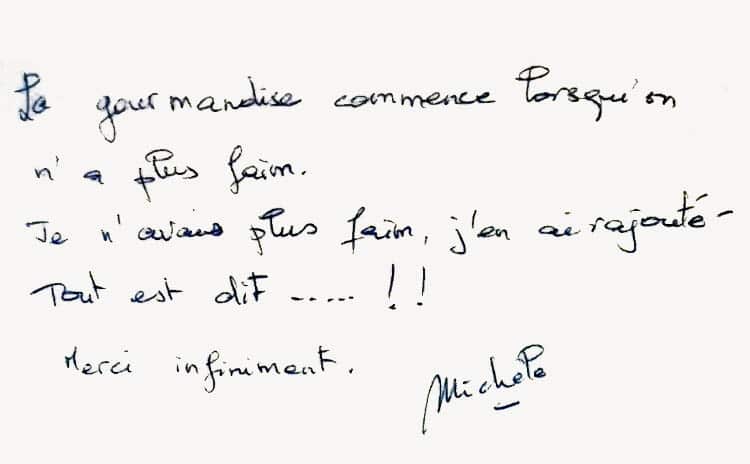 La gourmandise commence lorsqu'on
n'a plus faim.
Je n'avais plus faim, j'en ai rajouté -
Tout est dit ..... !!
Merci infiniment.
Michele